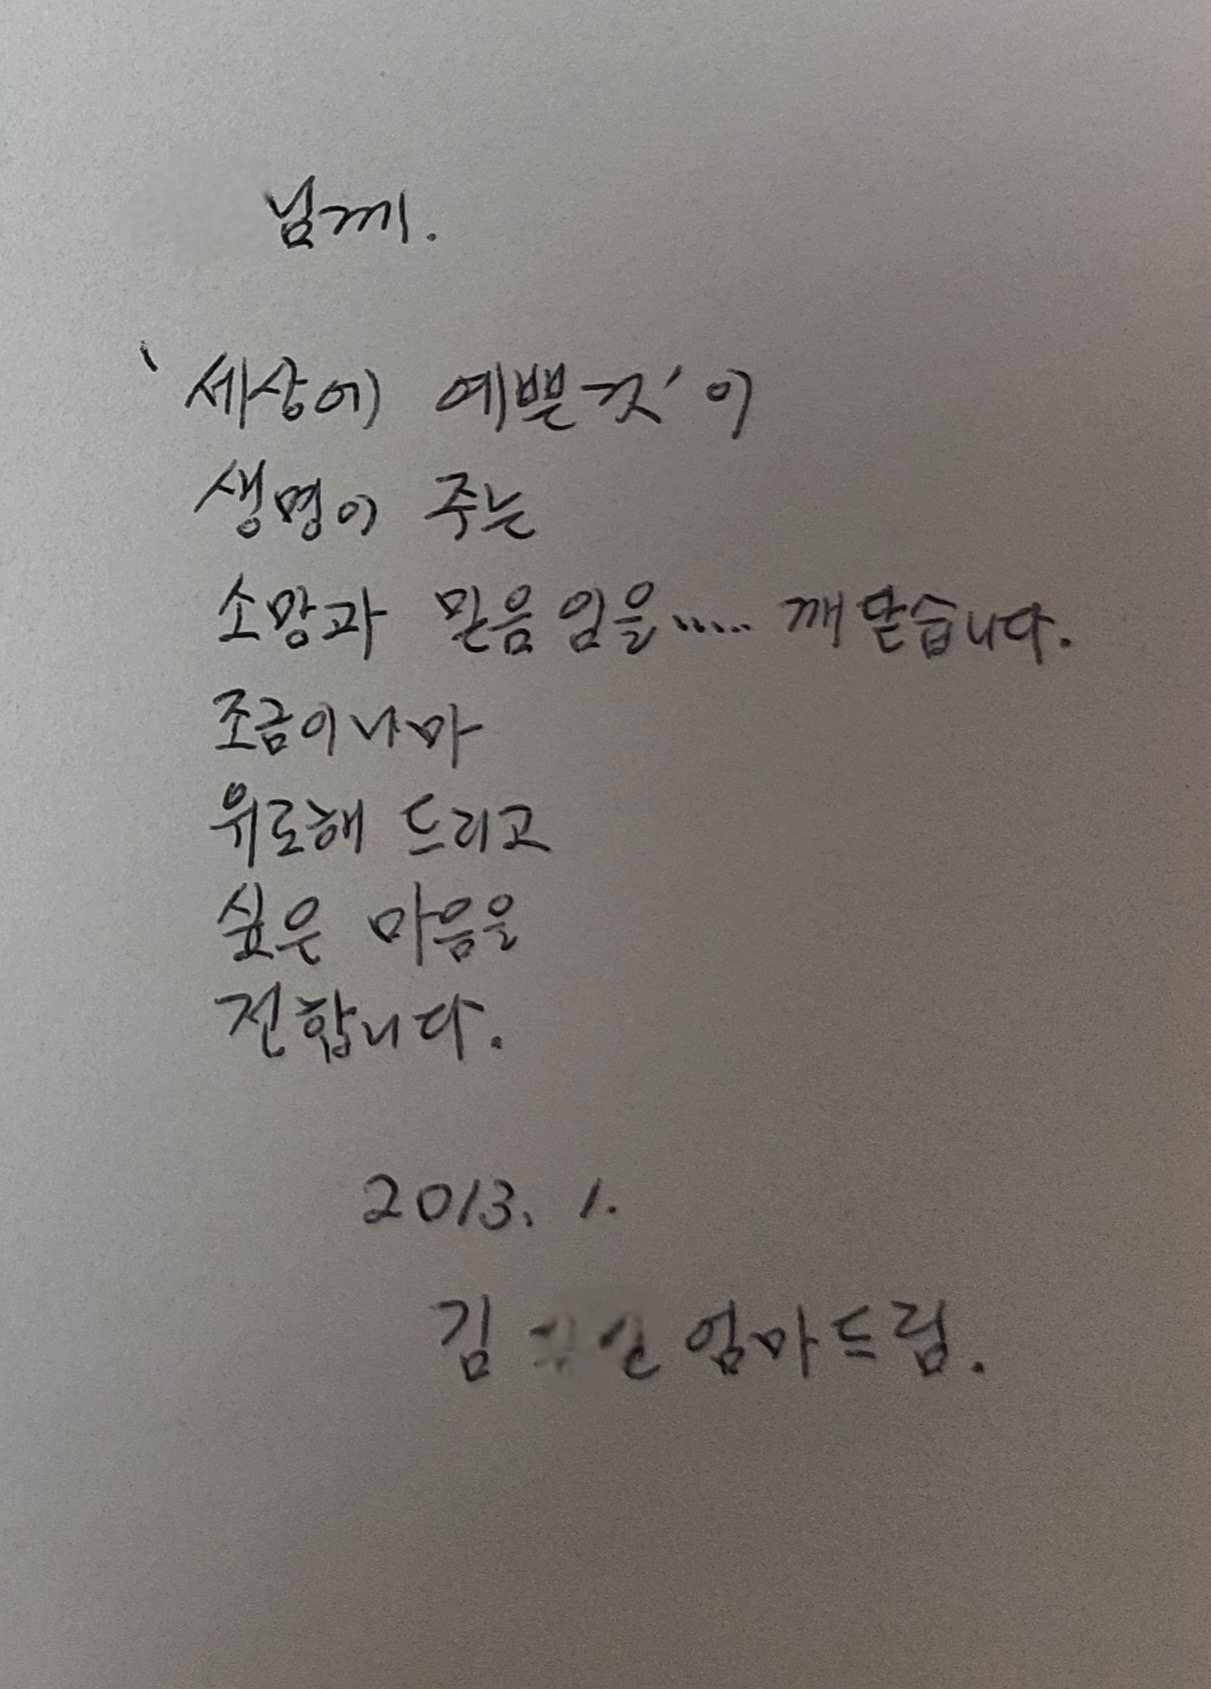 님께.
‘세상에 예쁜것’이
생명이 주는
소망과 믿음임을..... 깨닫습니다.
조금이나마
위로해 드리고
싶은 마음을
전합니다.
2013. 1.
김 엄마드림.